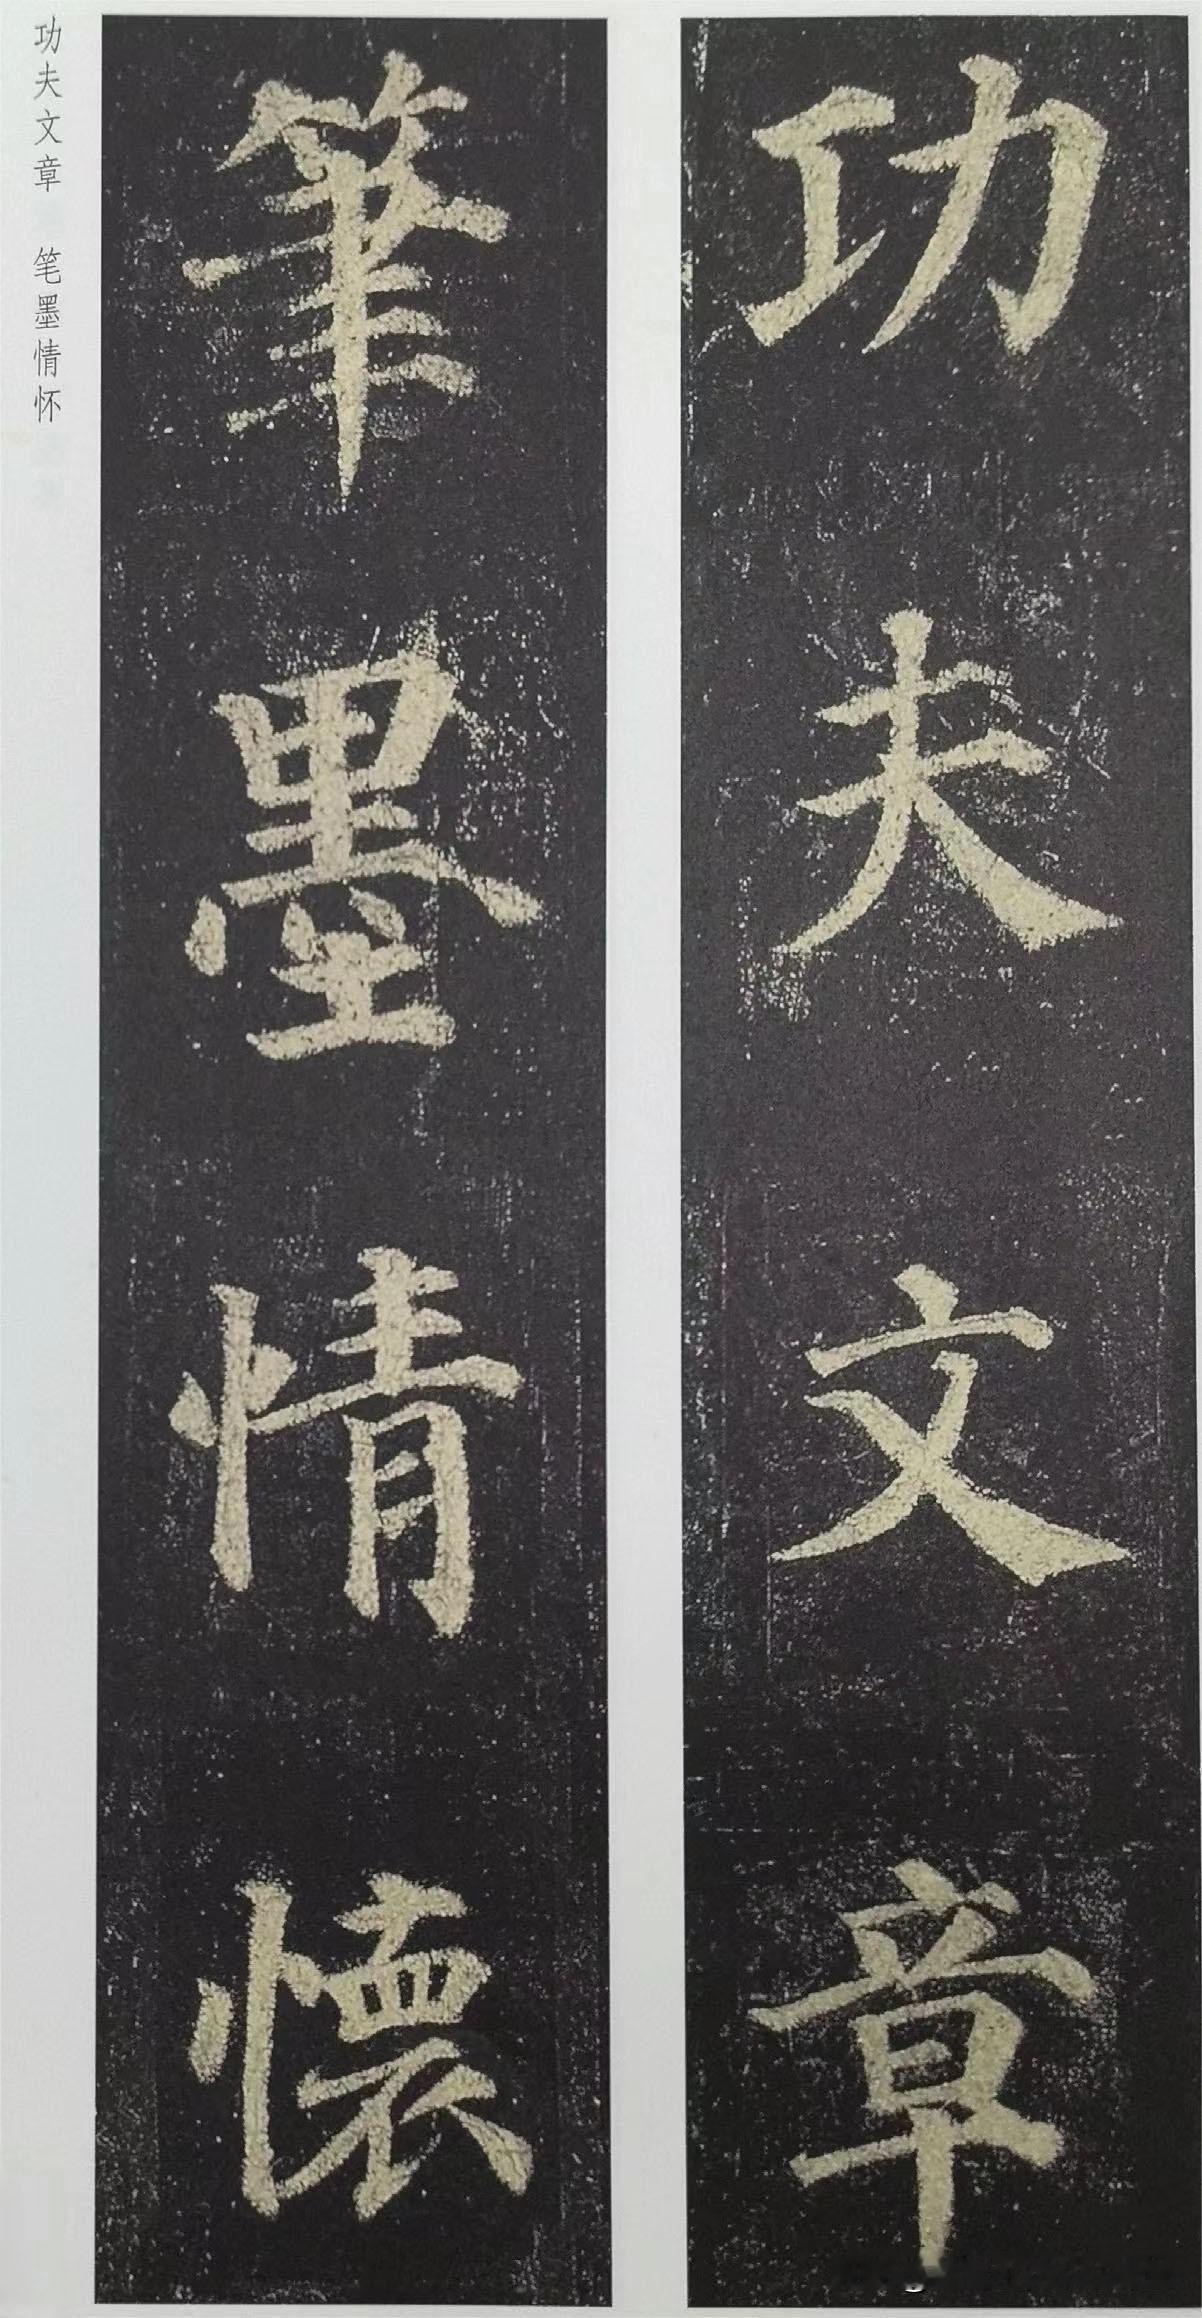 功夫文章
筆墨情懷
功夫文章 笔墨情怀